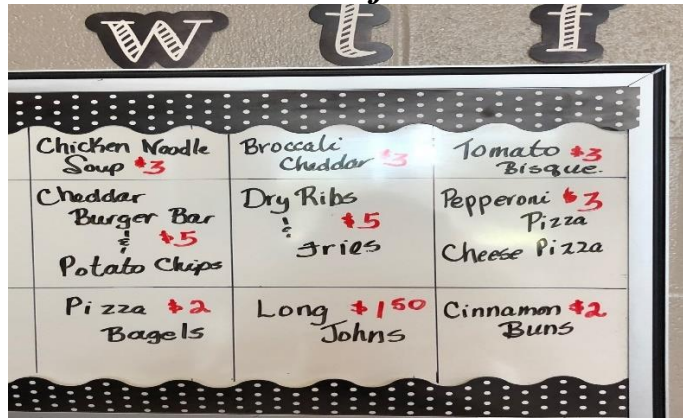 w t f
Chicken Noodle
Soup $3
Broccali
Cheddar $3
Tomato $3
Bisque.
Cheddar
Burger Bar
& $5
Potato Chips
Dry Ribs
& $5
Fries
Pepperoni $3
Pizza
Cheese Pizza
Pizza $2
Bagels
Long $1 50
Johns
Cinnamon $2
Buns